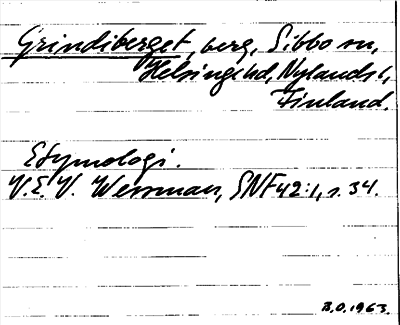 Grindiberget, berg, Sibbo sn,
Helsinge hd, Nylands l,
Finland.
Etymologi.
V.E.V. Wessman, SNF 42:1, s. 34.
B.O. 1963.